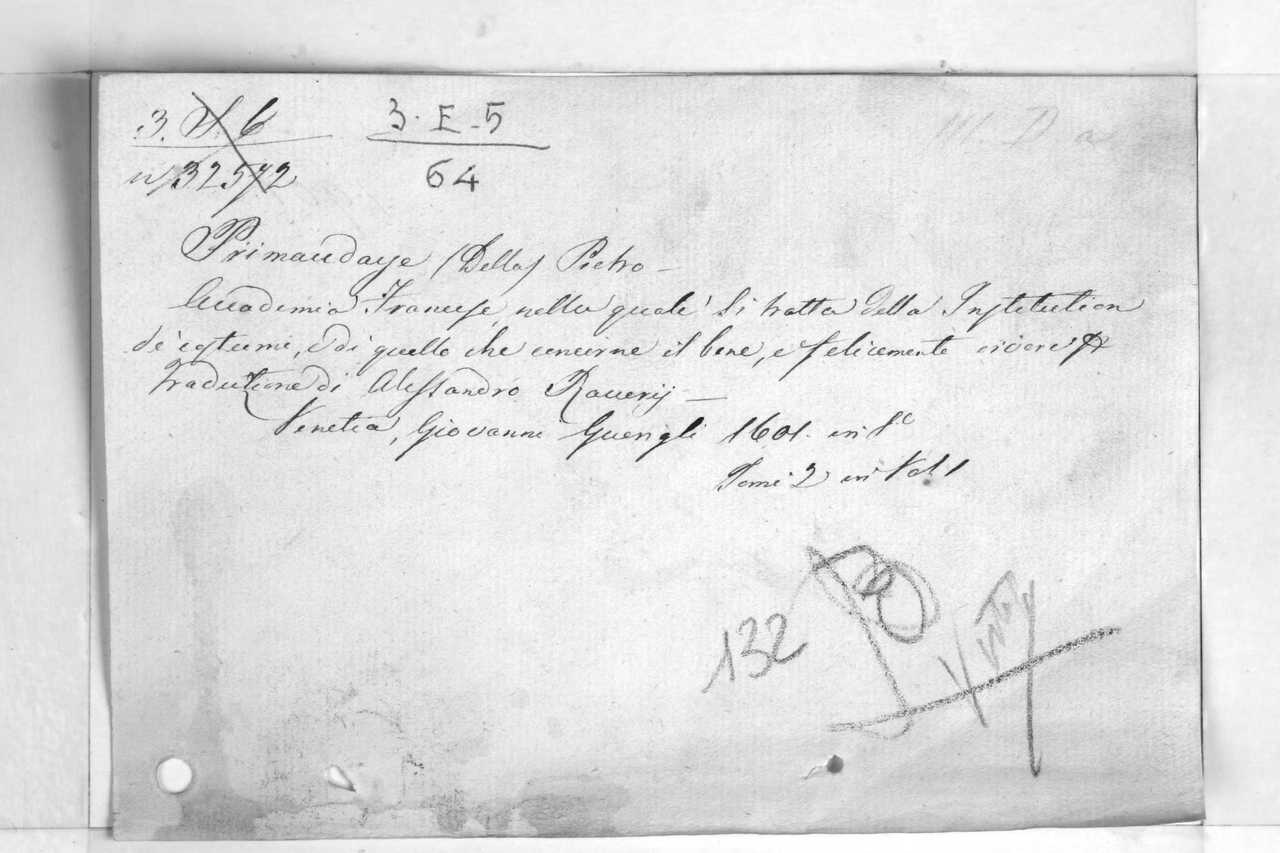 3. 6 3. E. 5
n/32572 64
Primaudaye (Della) Pietro —
Accademia Francese, nella quale si tratta della Institution
de' costumi, e di quello che concerne il bene, e felicemente vivere
traduzione di Alessandro Rauerij —
Venetia, Giovanni Guerigli 1601. in
Tomi 2 in Vol 1
132